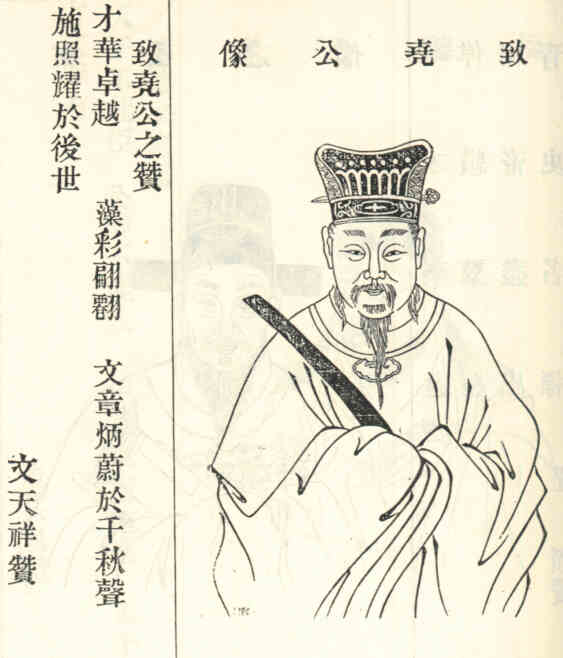 致堯公像
致堯公之贊
才華卓越　藻彩翩翻　文章炳蔚於千秋聲
施照耀於後世
文天祥贊